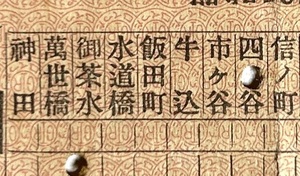 信ノ町
四谷
市ケ谷
牛込
飯田町
水道橋
御茶水
萬世橋
神田